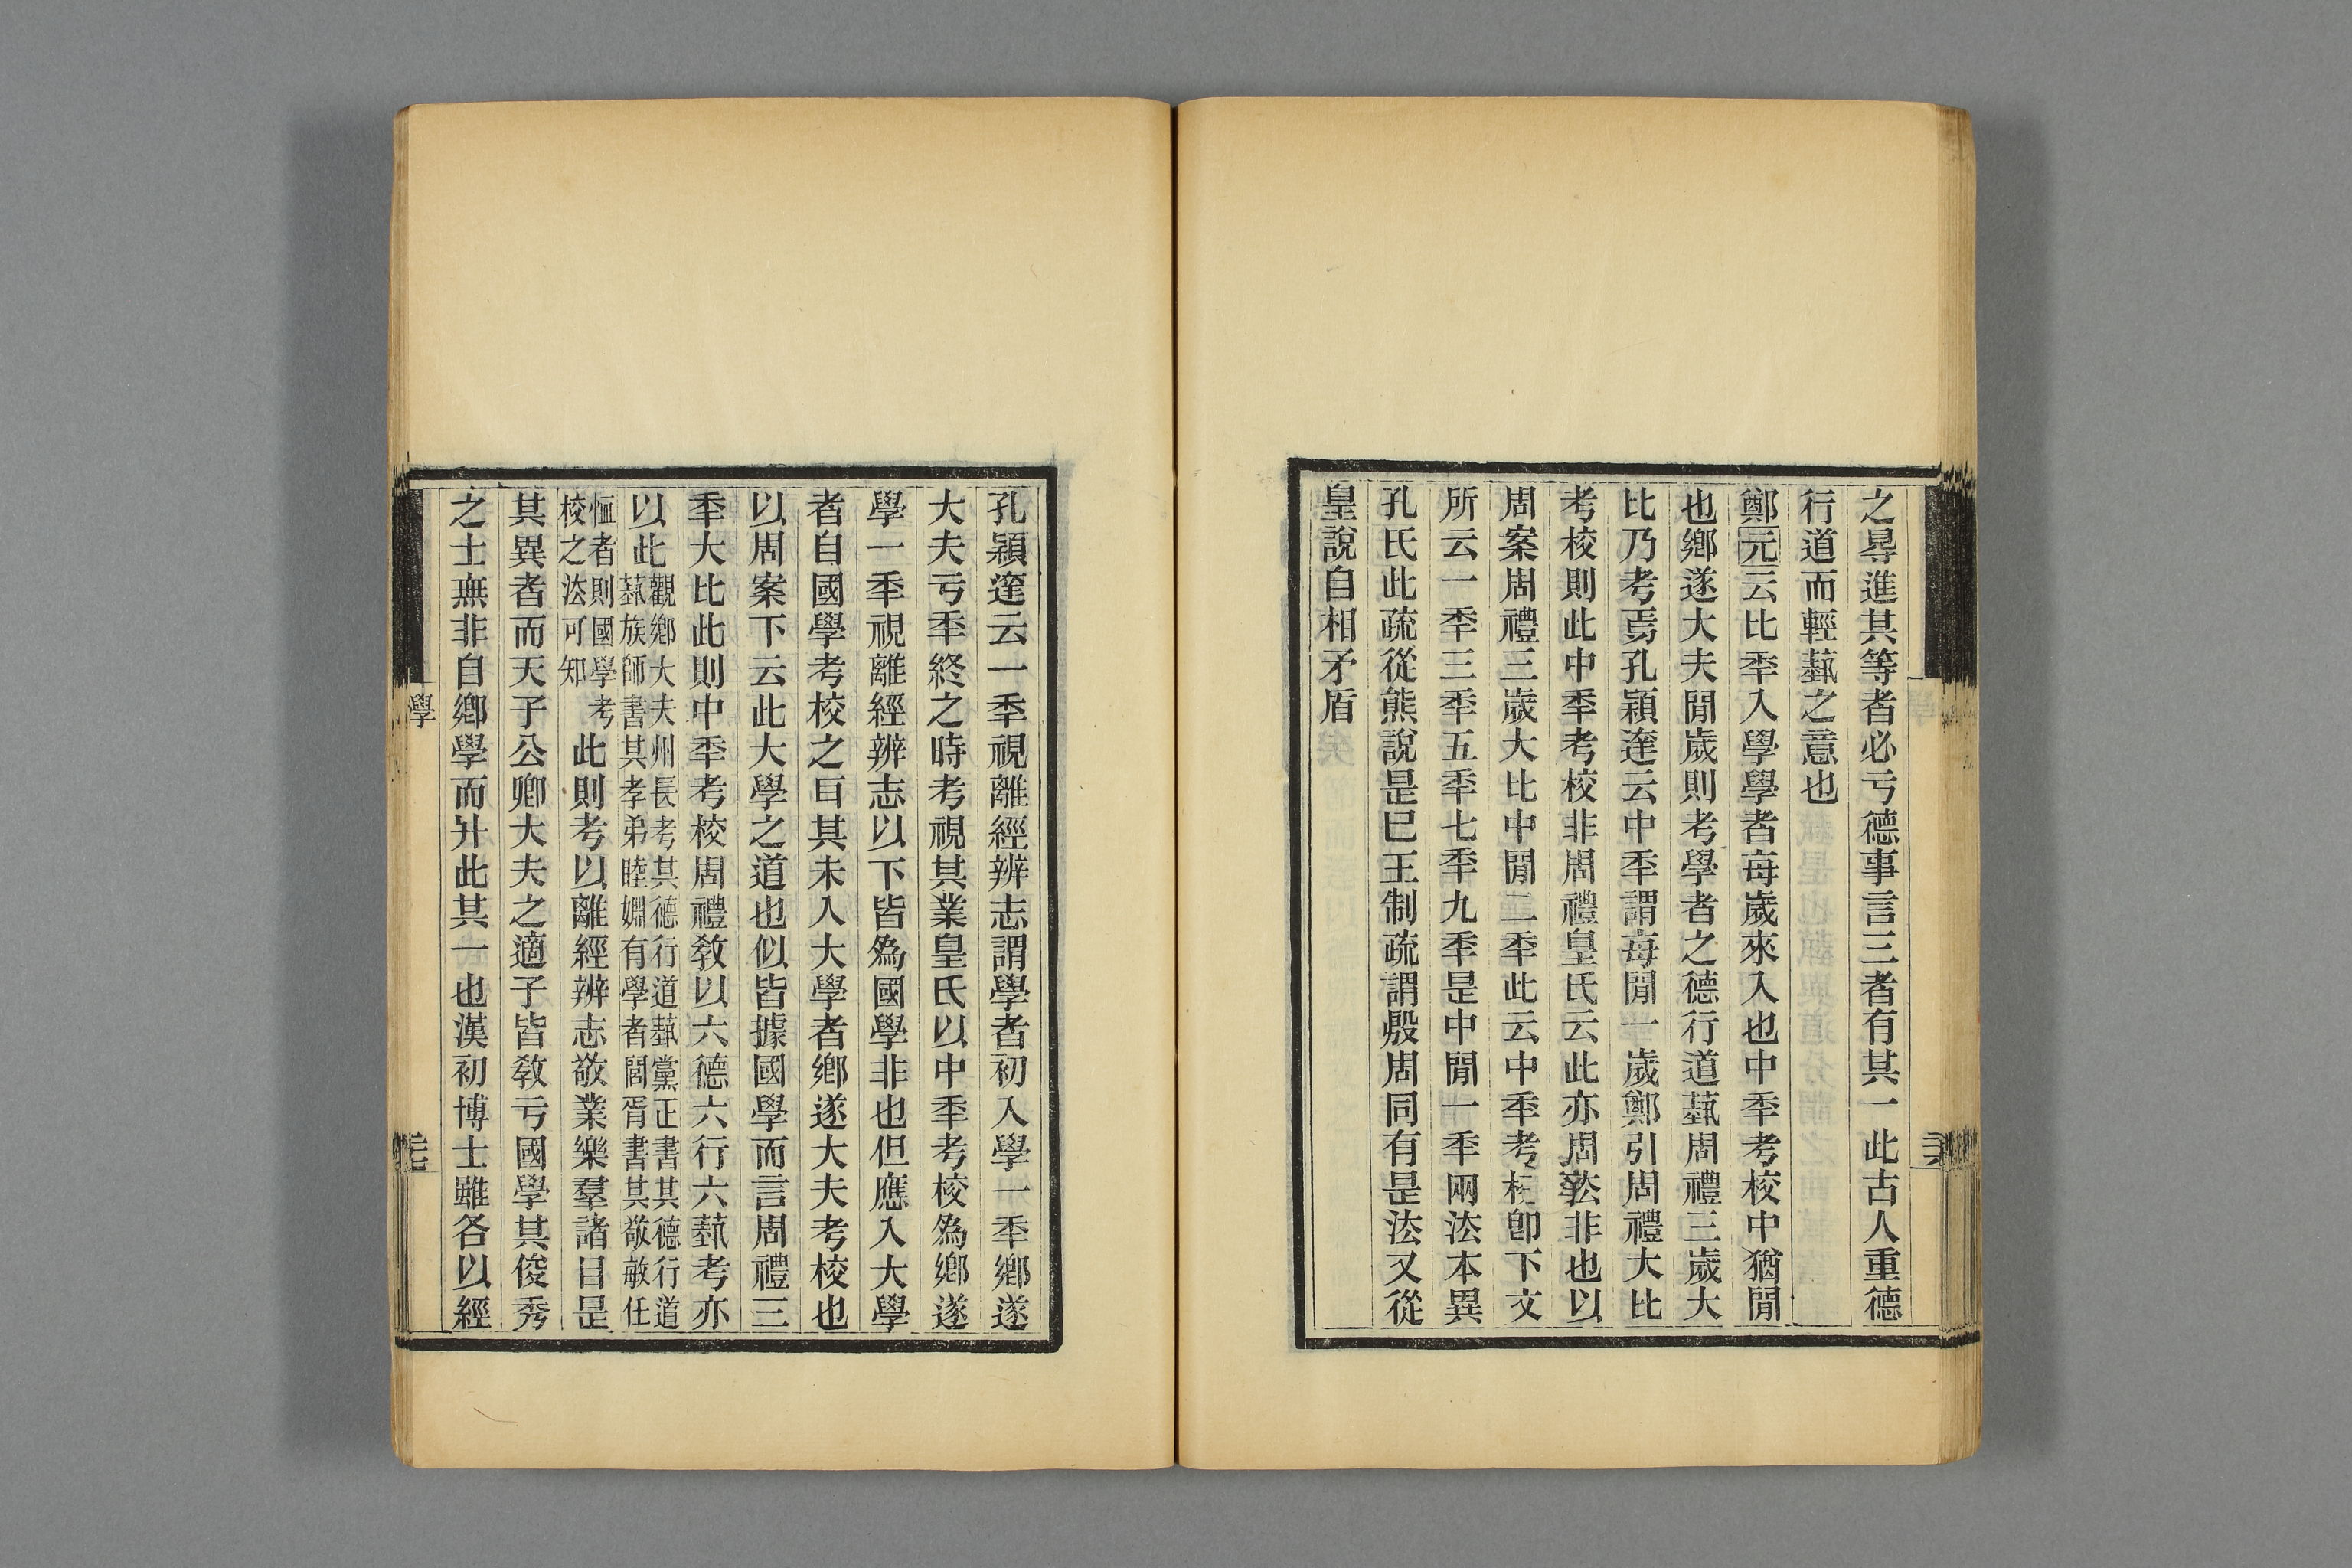 之㝵進其等者必亏德事言三者有其一此古人重德
行道而輕蓺之意也
鄭元云比秊入學學者每歲來入也中秊考校中猶閒
也鄉遂大夫閒歲則考學者之德行道蓺周禮三歲大
比乃考焉孔穎達云中秊謂每閒一歲鄭引周禮大比
考校則此中秊考校非周禮皇氏云此亦周灋非也以
周案周禮三歲大比中閒二秊此云中秊考校卽下文
所云一秊三秊五秊七秊九秊是中閒一秊兩法本異
孔氏此疏從熊說是巳王制疏謂殷周同有是法又從
皇說自相矛盾
孔穎達云一秊視離經辨志謂學者初入學一秊鄉遂
大夫亏秊終之時考視其業皇氏以中秊考校爲鄉遂
學一秊視離經辨志以下皆爲國學非也但應入大學
者自國學考校之㠯其未入大學者鄉遂大夫考校也
以周案下云此大學之道也似皆據國學而言周禮三
秊大比此則中秊考校周禮敎以六德六行六蓺考亦
以此觀鄉大夫州長考其德行道蓺黨正書其德行道
蓺族師書其孝弟睦婣有學者閭胥書其敬敏任
恤者則國學考
校之法可知此則考以離經辨志敬業樂羣諸目是
其異者而天子公卿大夫之適子皆敎亏國學其俊秀
之士無非自鄉學而升此其一也漢初博士雖各以經
學